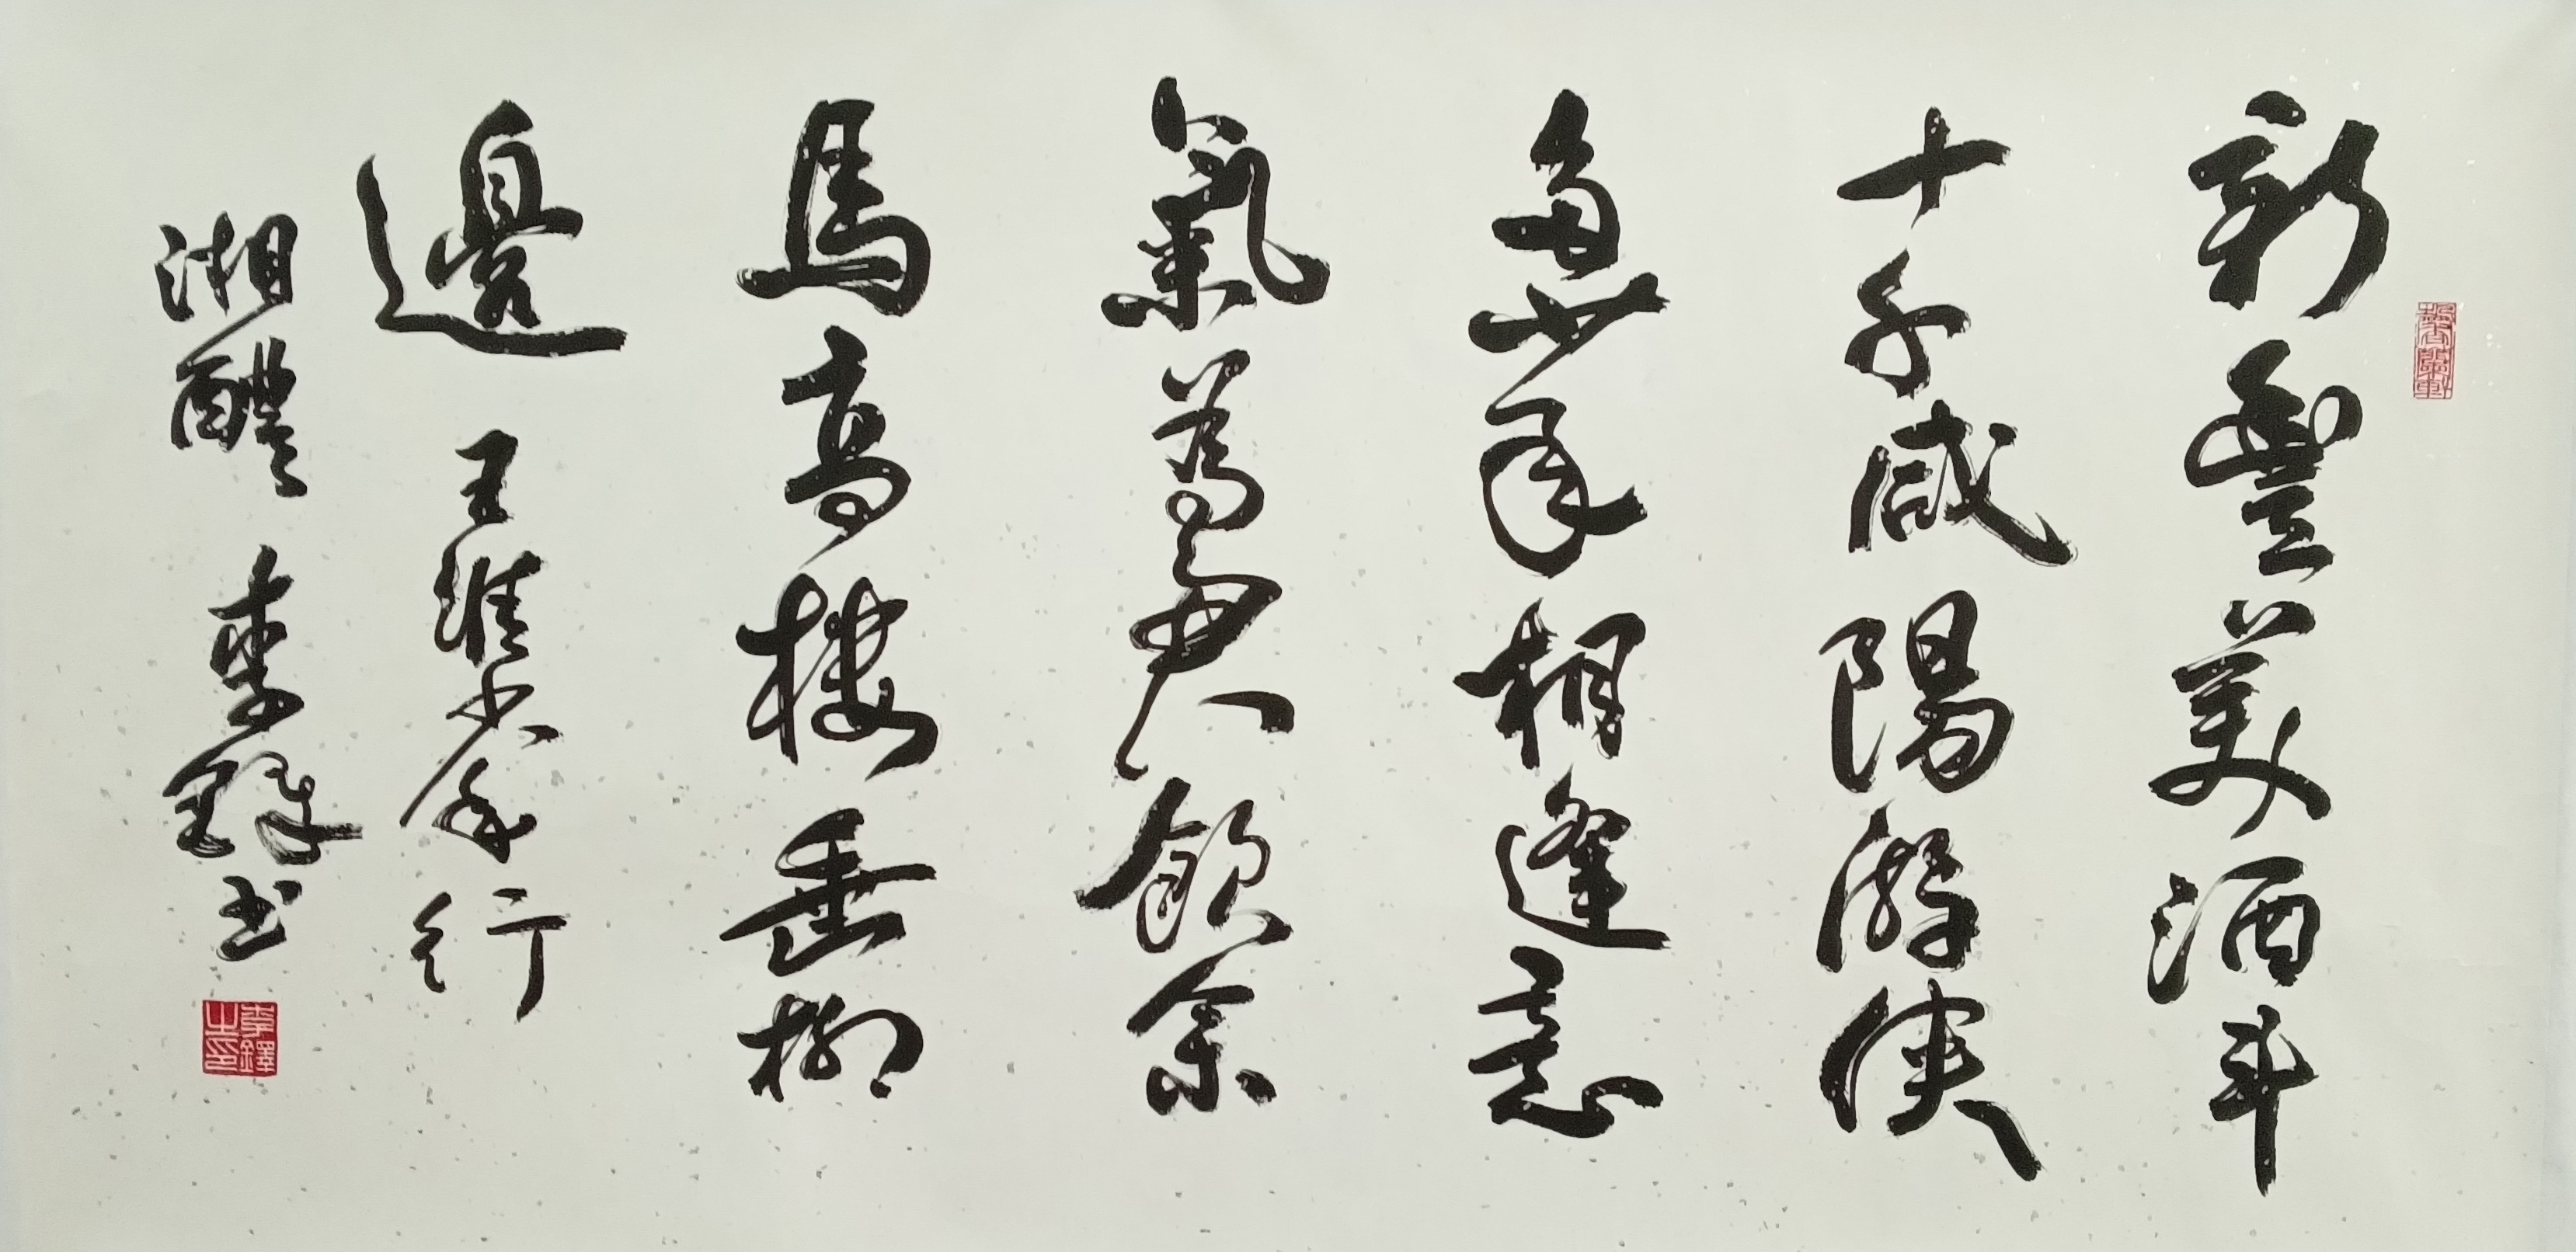 新豐美酒斗
十千咸陽游俠
多少年相逢意
氣為君飲繫
馬高樓垂柳
邊 王維少年行
湘醴 李鐸书
李鐸之印